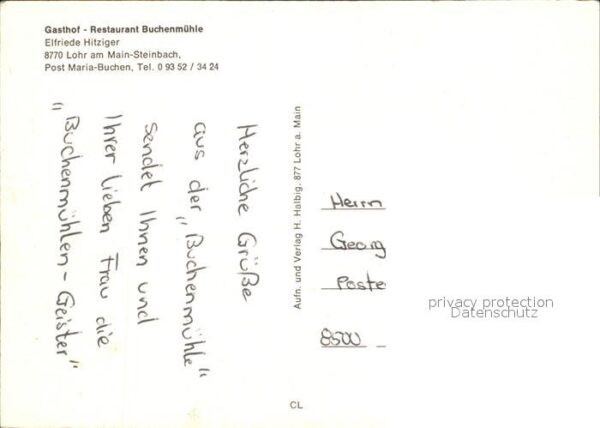 Gasthof - Restaurant Buchenmühle
Elfriede Hitziger
8770 Lohr am Main-Steinbach,
Post Maria-Buchen, Tel. 0 93 52 / 34 24
Herzliche Grüße
aus der „Buchenmühle"
sendet Ihnen und
Ihrer lieben Frau die
„Buchenmühlen - Geister"
Aufn. und Verlag H. Halbig, 877 Lohr a. Main
Herrn
Georg
Poste
8500
privacy protection
Datenschutz
CL